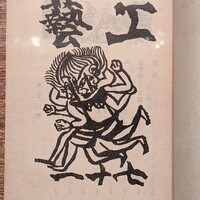 工藝
七十一